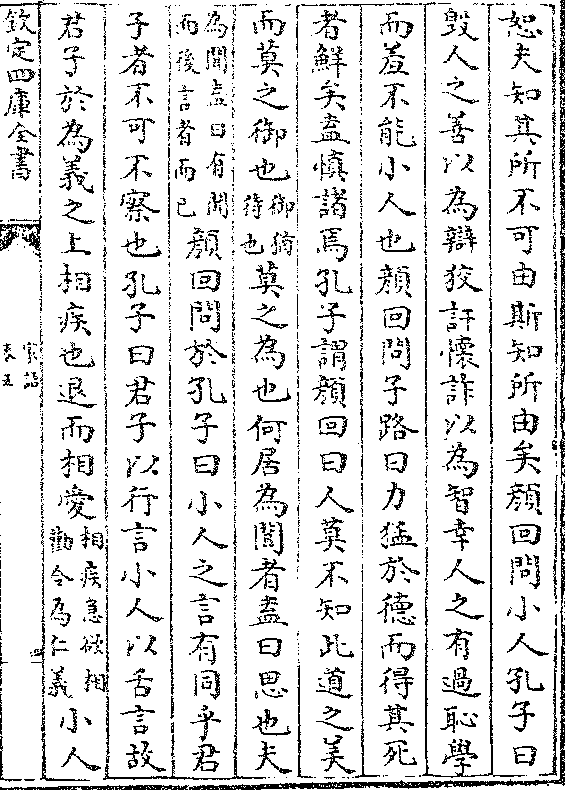 恕夫知其所不可由斯知所由矣顔回問小人孔子曰
毀人之善以為辯狡訐懷詐以為智幸人之有過恥學
而羞不能小人也顔回問子路曰力猛於德而得其死
者鮮矣盍慎諸焉孔子謂顔回曰人莫不知此道之美
而莫之御也御猶待也莫之為也何居為聞者盍曰思也夫
為聞盍曰有聞而後言者而已顔回問於孔子曰小人之言有同乎君
子者不可不察也孔子曰君子以行言小人以舌言故
君子於為義之上相疾也退而相愛相疾急欲相勸令為仁義小人
欽定四庫全書
家語
卷五